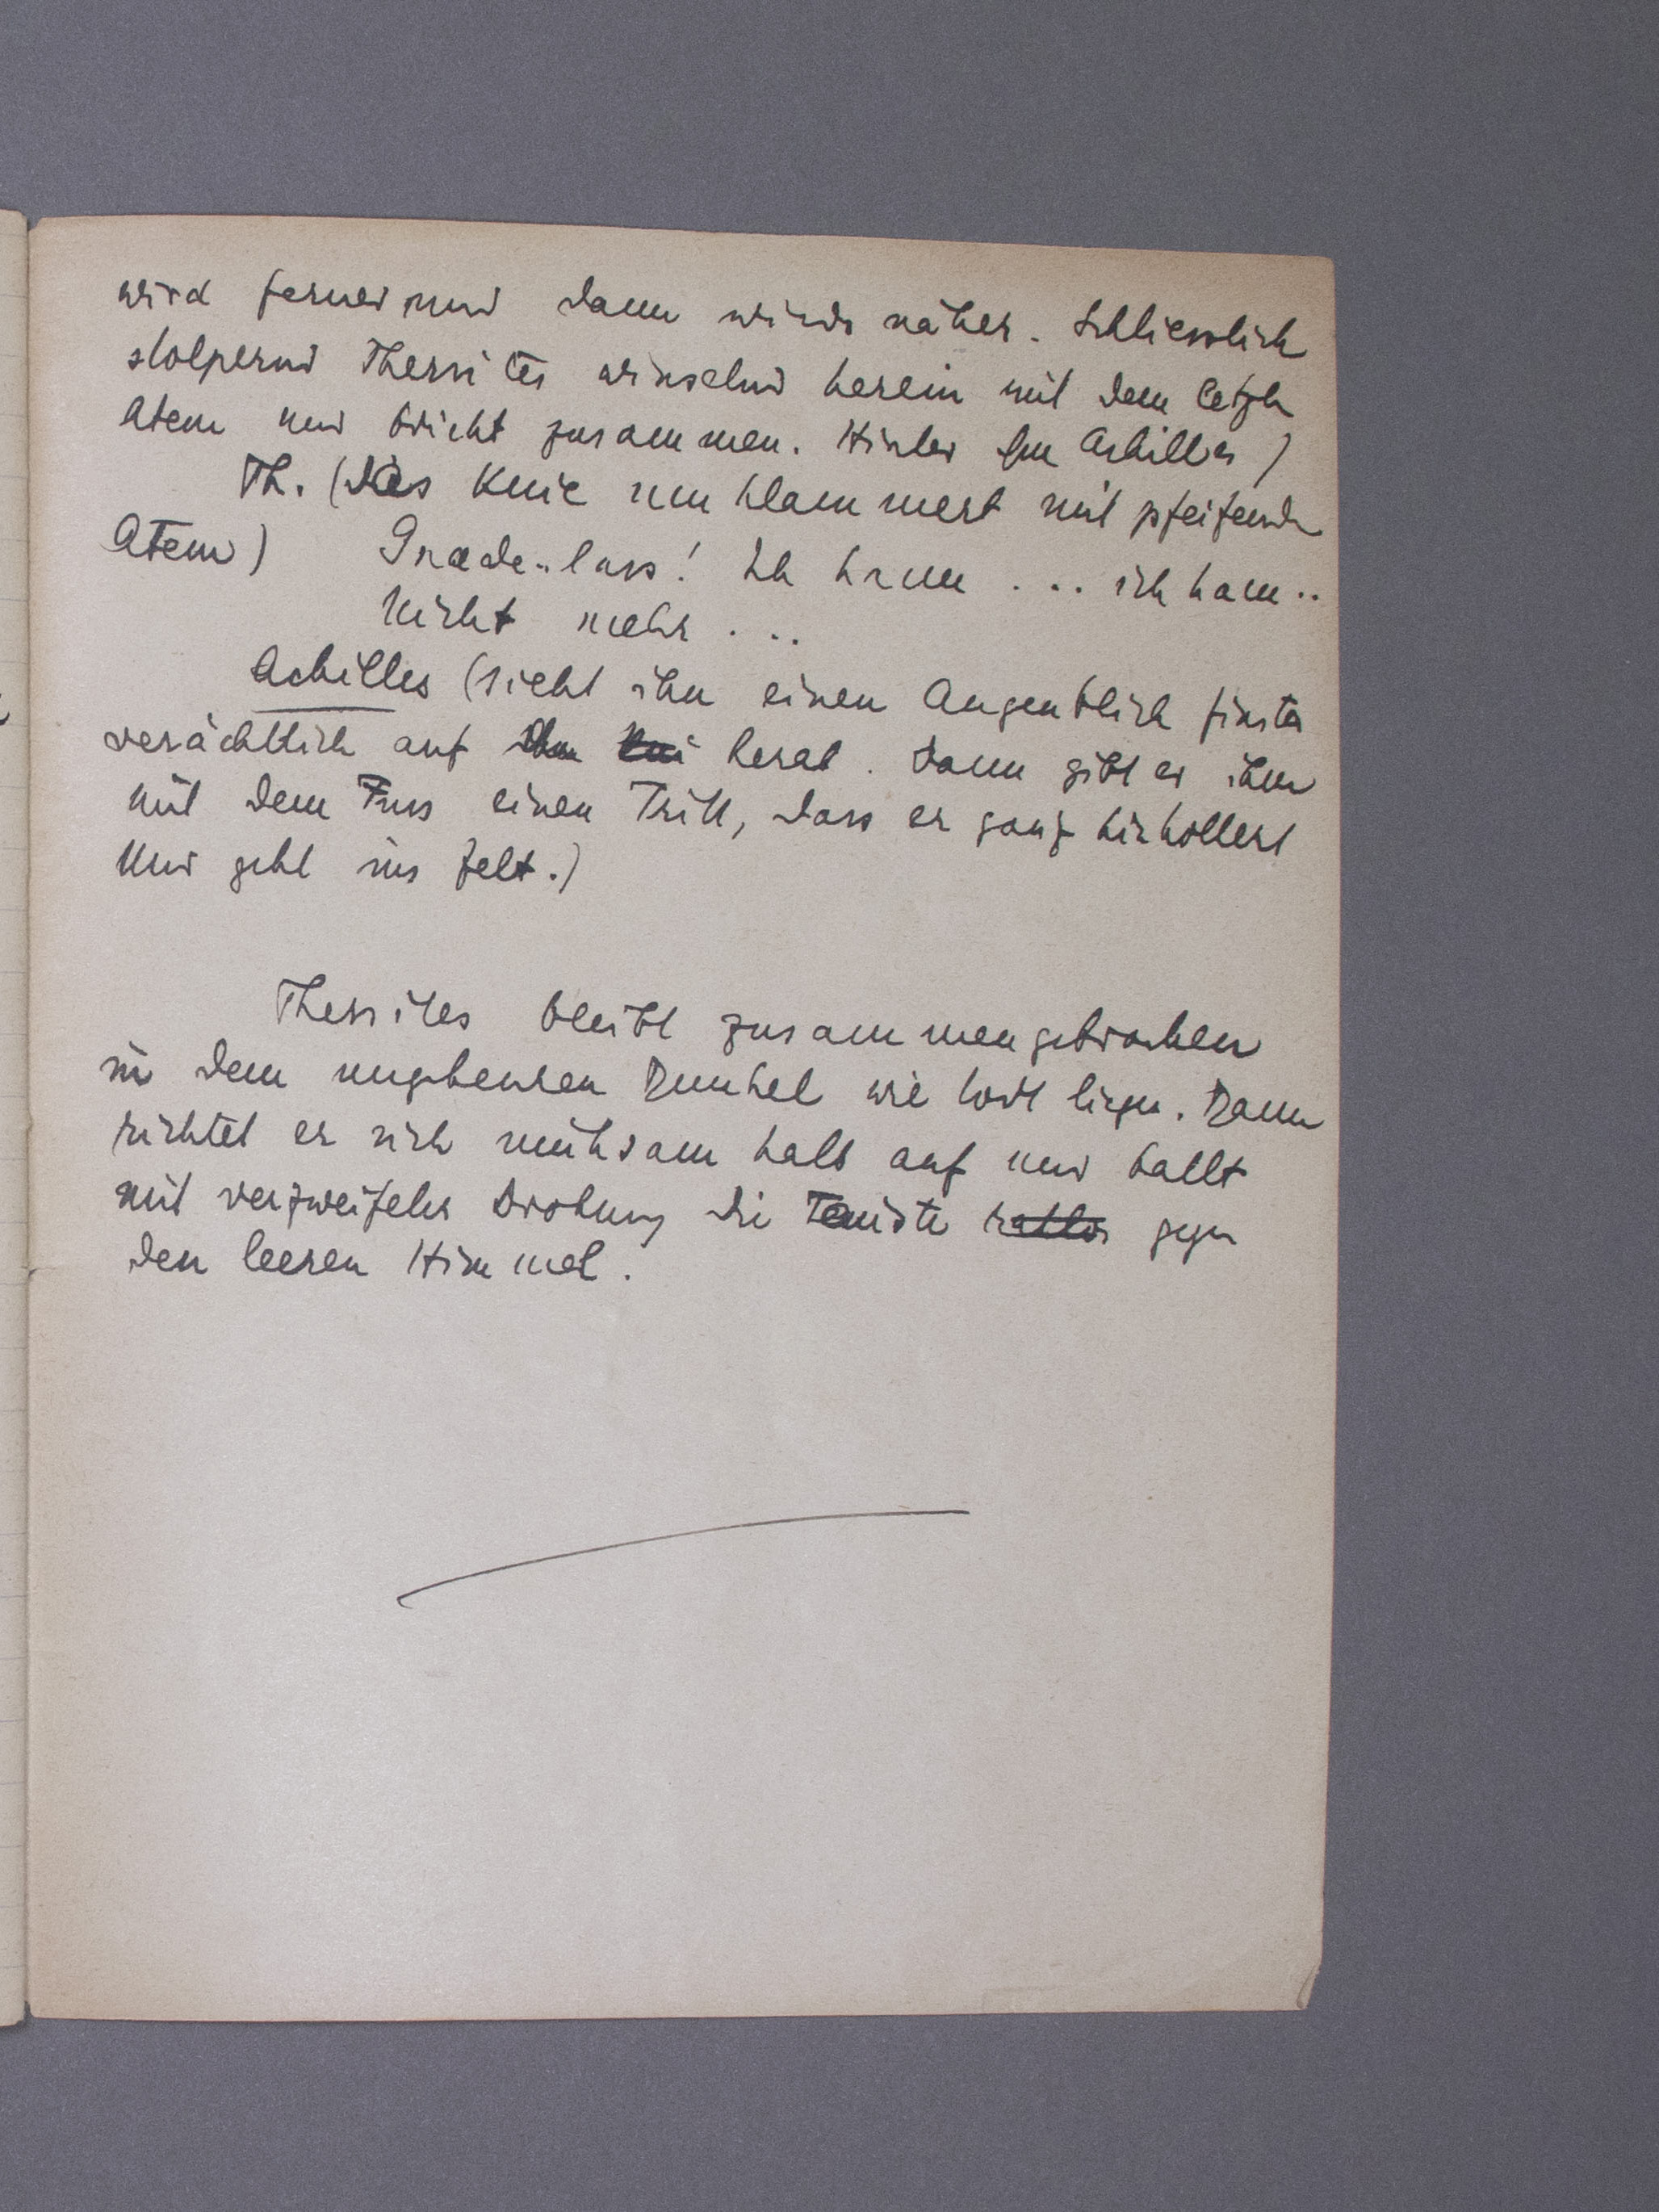 wird ferner und dann wieder näher. Schliesslich
stolpernd Thersites winselnd herein mit dem letzten
Atem und bricht zusammen. Hinter ihm Achilles)
Th. (das Knie umklammert mit pfeifenden
Atem) Gnade.. lass! Ich kann ... ich kann..
Nicht mehr ...
Achilles (sieht ihn einen Augenblick finster
verächtlich auf ihn herab. Dann gibt er ihm
mit dem Fuss einen Tritt, dass er ganz hinkollert
Und geht ins Zelt.)
Thersites bleibt zusammengebrochen
in dem ungeheuren Dunkel wie todt liegen. Dann
richtet er sich mühsam halb auf und ballt
mit verzweifelter Drohung die Fäuste gegen
den leeren Himmel.